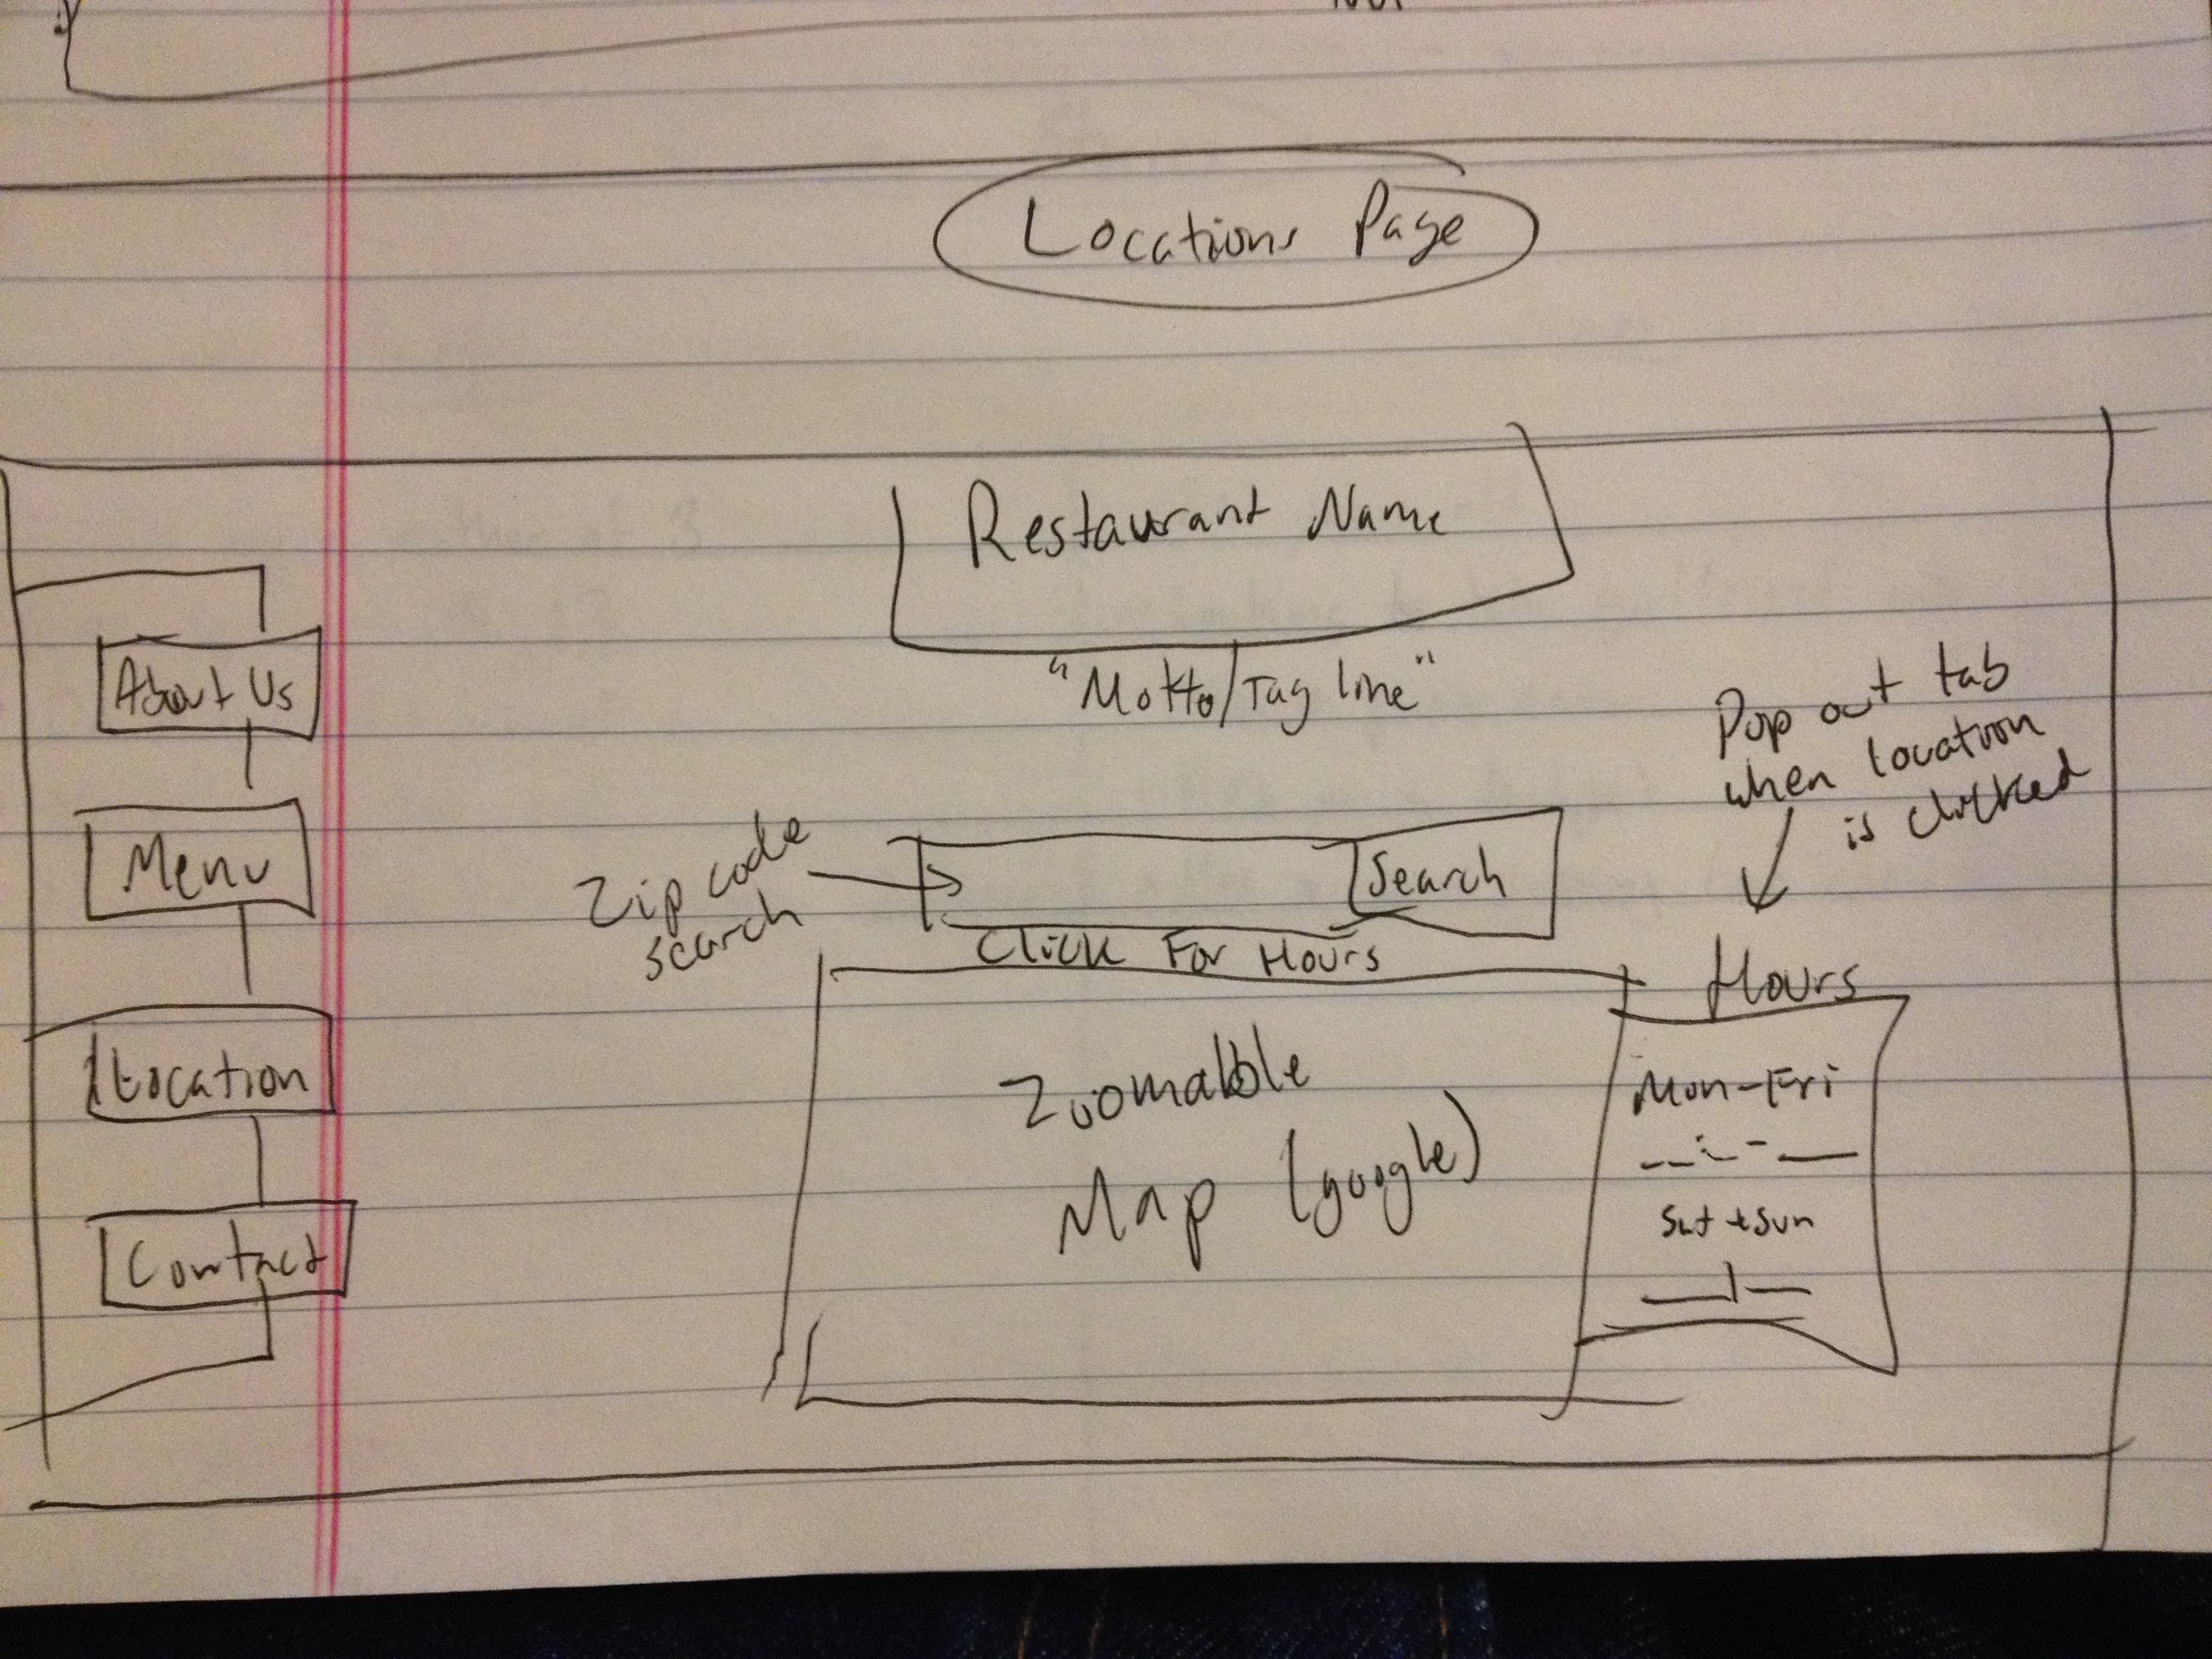 Locations Page
Restaurant Name
"Motto/Tag line"
About Us
Menu
Location
Contact
Zip code
search
Search
Click For Hours
Zoomable
Map (google)
Pop out tab
when location
is clicked
Hours
Mon-Fri
Sat + Sun